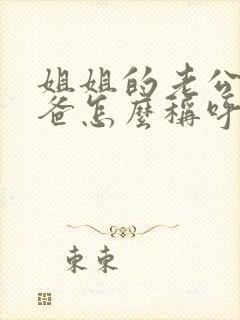 姐姐的老公
爸怎麼稱呼
東東